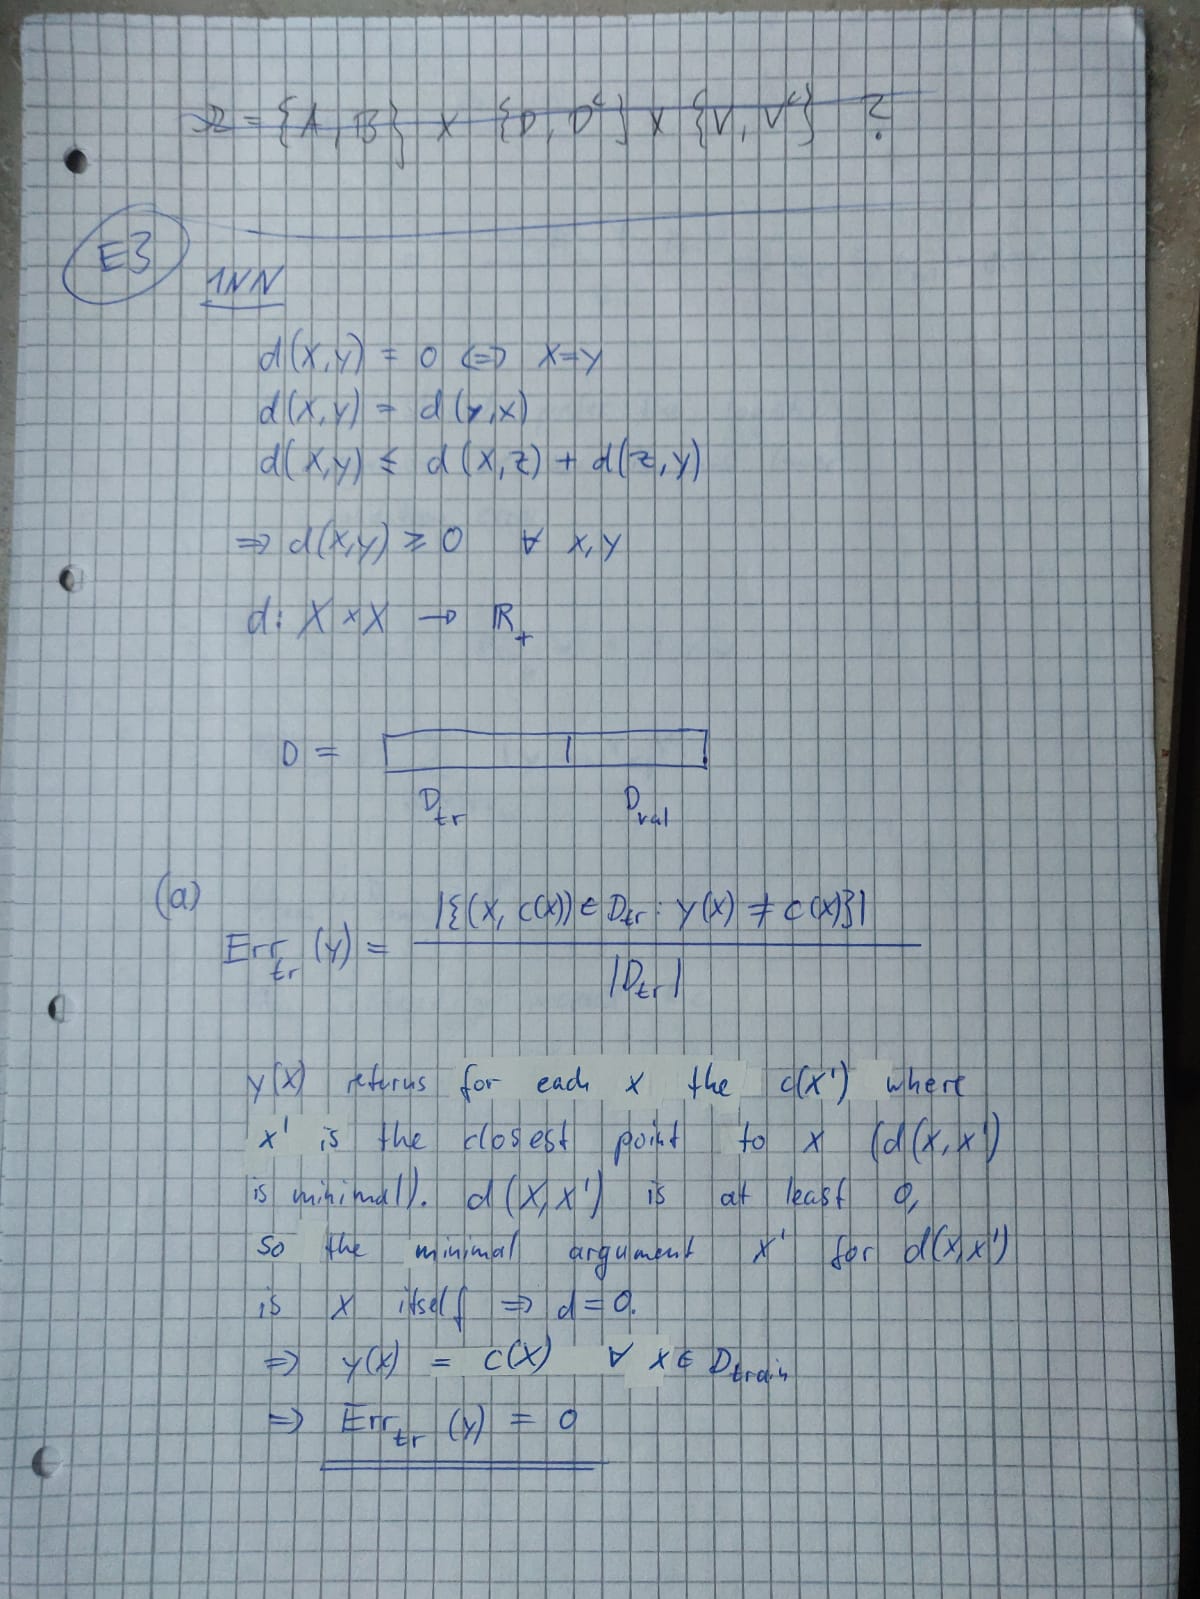 Ω = {A, B} × {D, Dᶜ} × {V, Vᶜ} ?
E3
1NN
d(x,y) = 0 ⇔ x=y
d(x,y) = d(y,x)
d(x,y) ≤ d(x,z) + d(z,y)
⇒ d(x,y) ≥ 0 ∀ x,y
d: X × X → ℝ₊
D =
D_tr D_val
(a)
Err_tr (y) = |{(x, c(x)) ∈ D_tr : y(x) ≠ c(x)}| / |D_tr|
y(x) returns for each x the c(x') where
x' is the closest point to x (d(x,x')
is minimal). d(x,x') is at least 0,
so the minimal argument x' for d(x,x')
is x itself ⇒ d=0.
⇒ y(x) = c(x) ∀ x ∈ D_train
⇒ Err_tr (y) = 0